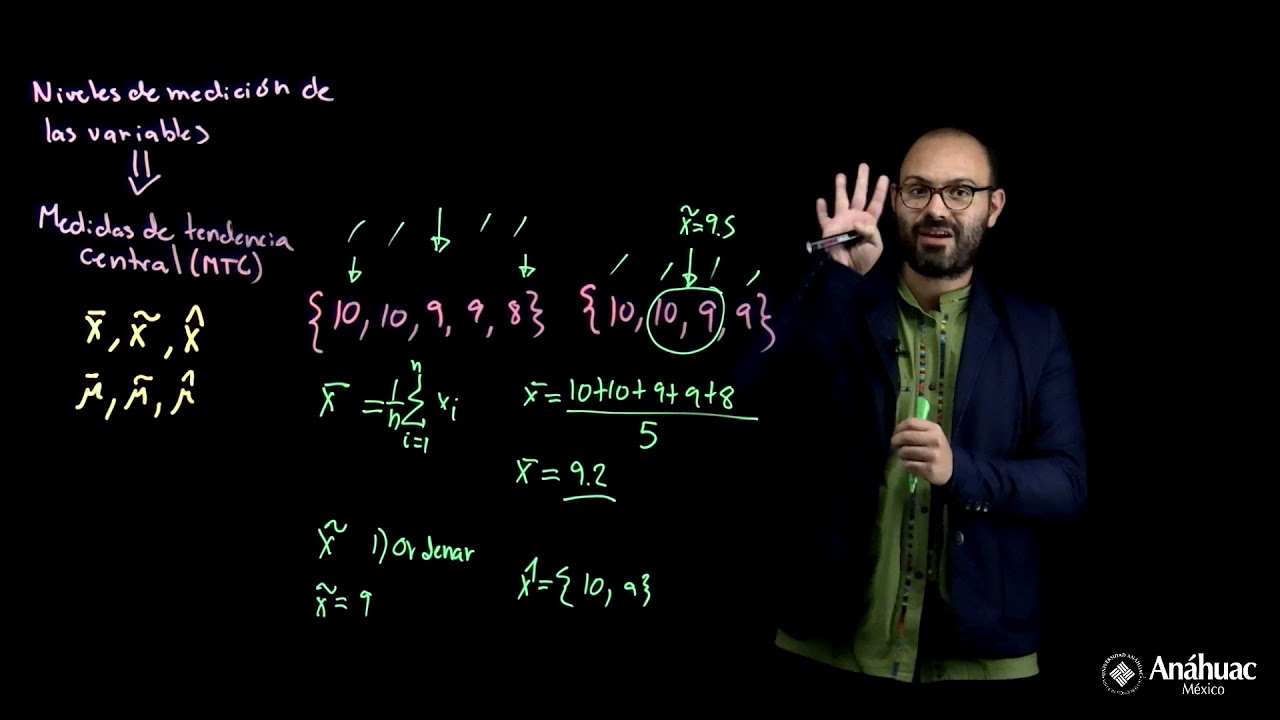 Niveles de medición de
las variables
⇓
Medidas de tendencia
central (MTC)
x̄, x̃, x̂
μ̄, μ̃, μ̂
{10, 10, 9, 9, 8}
x̃=9.5
{10, 10, 9, 9}
x̄ = 1/n ∑ᵢ₌₁ⁿ xᵢ
x̄ = 10+10+9+9+8 / 5
x̄ = 9.2
x̃ 1) Ordenar
x̃ = 9
x̂ = {10, 9}
Anáhuac
México